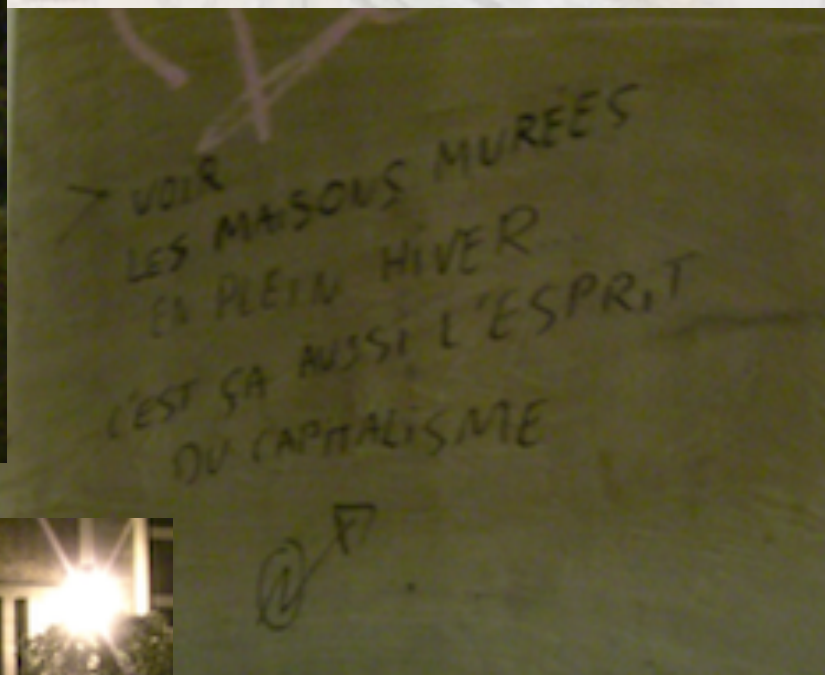 > VOIR
LES MAISONS MURÉES
EN PLEIN HIVER...
C'EST ÇA AUSSI L'ESPRIT
DU CAPITALISME